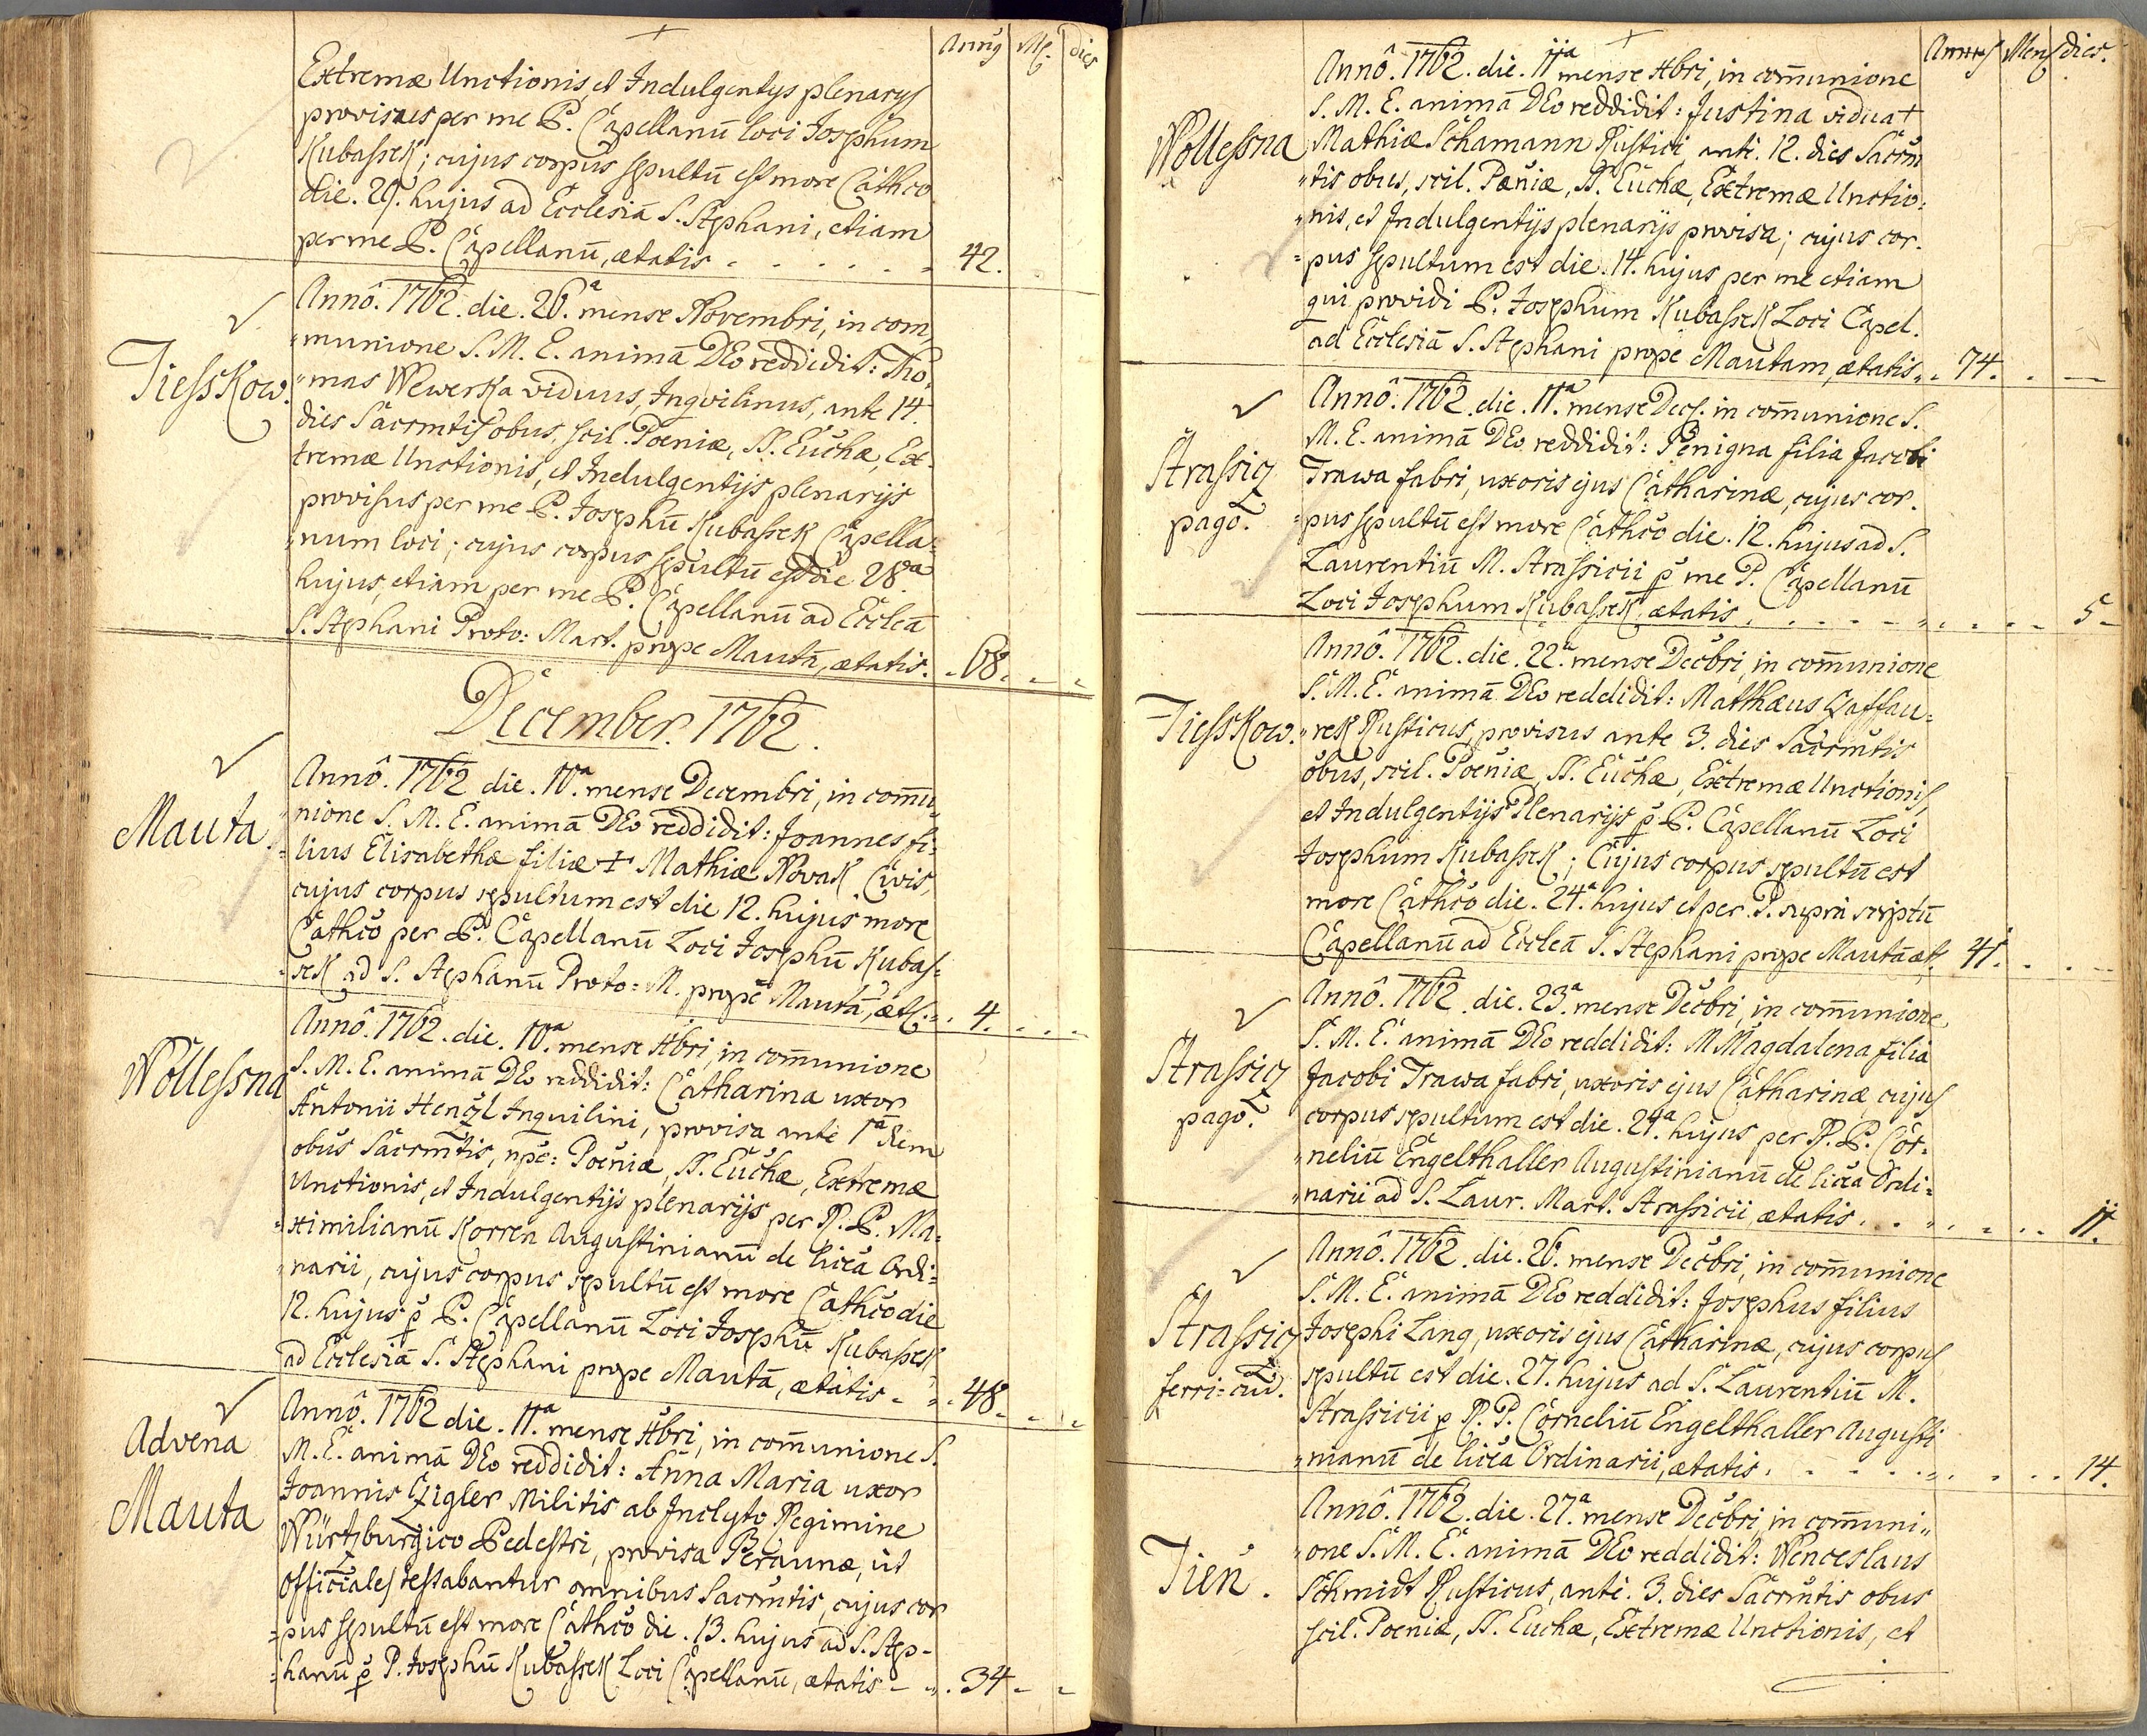 Annus Ms. dies
Extremæ Unctionis, et Indulgentys plenarys
provisus per me P. Capellanū loci Josephum
Kubassek; cujus corpus sepultū est more Cathco
die. 29. hujus ad Ecclesiā S. Stephani, etiam
per me P. Capellanū, ætatis - - - - - - 42.
Annô. 1762. die. 26.a mense Novembri, in com„
Tiesskow. „munione S. M. E. animā DEo reddidit: Tho„
„mas Wewerka viduus, Inqvilinus, ante 14.
dies Sacrmtis obus, scil. Poeniæ, SS. Euchæ, Ex-
tremæ Unctionis, et Indulgentijs plenarijs
provisus per me P. Josephū Kubassek Capella=
„num loci; cujus corpus sepultū est die 28a
hujus, etiam per me P. Capellanū ad Eccleā
S. Stephani Proto: Mart. prope Mautā, ætatis. . 68. - -
December. 1762.
Annô. 1762 die. 10.a mense Decembri, in commu„
Mauta. „nione S. M. E. animā DEo reddidit: Joannes fi=
„lius Elisabethæ filiæ + Mathiæ Novak Civis,
cujus corpus sepultum est die 12. hujus more
Cathco per P. Capellanū Loci Josephū Kubas=
„sek ad S. Stephanū Proto: M. prope Mautā, æt. . 4. . . .
Annô. 1762. die. 10.a mense Xbri, in com̄unione
Wollessna S. M. E. animā DEo reddidit: Catharina uxor
Antonii Hengl Inquilini, provisa ante 1ā diem
obus Sacrmtis, npe: Poeniæ, SS. Euchæ, Extremæ
Unctionis, et Indulgentijs plenarijs per R. P. Ma=
„ximilianū Korren Augustinianū de licā Ordi=
„narii, cujus corpus sepultū est more Cathco die
12. hujus p P. Capellanū Loci Josephū Kubassek
ad Ecclesiā S. Stephani prope Mautā, ætatis - - 48. - -
Annô. 1762 die. 11.a mense Xbri, in com̄unione S.
Advena M. E. animā DEo reddidit: Anna Maria uxor
Mauta Joannis Zigler Militis ab Inclyto Regimine
Würtzburgico Pedestri, provisa Beraunæ, ut
officiales testabantur omnibus Sacrmtis, cujus cor
=pus sepultū est more Cathco die. 13. hujus ad S. Step-
=hanū p P. Josephū Kubassek Loci Capellanū, ætatis - . 34 - -
Annus Mens dies.
Annô. 1762. die. 11a mense Xbri, in com̄unione
S. M. E. animā DEo reddidit: Justina vidua +
Wollessna Mathiæ Schamann Rustici, ante. 12. dies Sacrm
„tis obus, scil. Pæniæ, SS. Euchæ, Extremæ Unctio=
„nis, et Indulgentijs plenarijs provisa; cujus cor-
=pus sepultum est die. 14. hujus per me etiam
qui providi P. Josephum Kubassek Loci Capel.
ad Ecclesiā S. Stephani prope Mautam, ætatis . . 74. . —
Annô. 1762. die. 11.a mense Decs. in com̄unione S.
Strassicz M. E. animā DEo reddidit: Benigna filia Jacobi
pago. Trawa fabri, uxoris ejus Catharinæ, cujus cor-
=pus sepultū est more Cathco die. 12. hujus ad S.
Laurentiū M. Strassicii p me P. Capellanū
Loci Josephum Kubassek, ætatis . . . . . . . . . 5 -
Annô. 1762. die. 22.a mense Decbri, in com̄unione
S. M. E. animā DEo reddidit: Matthæus Zaffau=
Tiesskow. „rek Rusticus, provisus ante 3. dies Sacrmtis
obus, scil. Poeniæ, SS. Euchæ, Extremæ Unctionis,
et Indulgentijs Plenarijs p P. Capellanū Loci
Josephum Kubassek; Cujus corpus sepultū est
more Cathco die. 24.a hujus et per P. supra scriptū
Capellanū ad Eccleā S. Stephani prope Mautā æt. 41. . . -
Annô. 1762. die. 23.a mense Decbri, in com̄unione
S. M. E. animā DEo reddidit: M Magdalena filia
Strassicz Jacobi Trawa fabri, uxoris ejus Catharinæ, cujus
pago. corpus sepultum est die. 24.a hujus per R. P. Cor=
„neliū Engelthaller Augustinianū de licā Ordi=
„narii ad S. Laur. Mart. Strassicii, ætatis. . . . . . . 11.
Annô. 1762. die. 26. mense Decbri, in com̄unione
S. M. E. animā DEo reddidit: Josephus filius
Strassicz Josephi Lang, uxoris ejus Catharinæ, cujus corpus
ferri=cud. sepultū est die. 27. hujus ad S. Laurentiū M.
Strassicii p R. P. Corneliū Engelthaller Augusti
„nianū de licā Ordinarii, ætatis. . . . . . . . . 14.
Annô. 1762. die. 27.a mense Decbri, in com̄uni„
„one S. M. E. animā DEo reddidit: Wenceslaus
Tien. Schmidt Rusticus, ante. 3. dies Sacrmtis obus
scil. Poeniæ, SS. Euchæ, Extremæ Unctionis, et